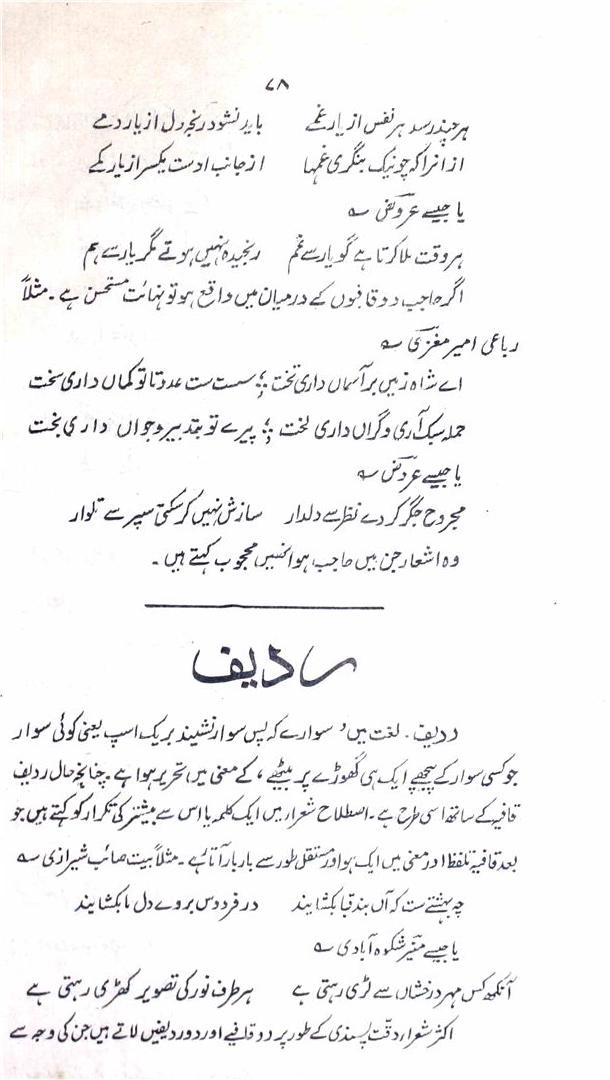 ۷۸
ہر چند رسد ہر نفس از یار غمے باید نشود رنجہ دل از یار دمے
از انرا کہ چو نیک بنگری غمہا از جانب اوست یکسر از یار کمے
یا جیسے عروض ؎
ہر وقت ملا کرتا ہے گو یار سے غم رنجیدہ نہیں ہوتے مگر یار سے ہم
اگر حاجب دو قافوں کے درمیان میں واقع ہو تو نہائت مستحسن ہے۔ مثلاً
رباعی امیر مغزی ؎
اے شاہ زمیں بر آسماں داری تخت ؛ سست ست عدو تا تو کماں داری سخت
حملہ سبک آری و گراں داری لخت ؛ پیرے تو بتدبیر و جواں داری بخت
یا جیسے عروض ؎
مجروح جگر کر دے نظر سے دلدار سازش نہیں کر سکتی سپر سے تلوار
وہ اشعار جن میں حاجب ہو انہیں محجوب کہتے ہیں۔
ردیف
ردیف۔ لغت میں ’ سوارے کہ پس سوار نشیند بریک اسپ یعنی کوئی سوار
جو کسی سوار کے پیچھے ایک ہی گھوڑے پر بیٹھے ‘ کے معنی میں تحریر ہوا ہے۔ چنانچہ حال ردیف
قافیہ کے ساتھ اسی طرح ہے۔ اصطلاح شعرا میں ایک کلمہ یا اس سے بیشتر کی تکرار کو کہتے ہیں جو
بعد قافیۂ تلفظ اور معنی میں ایک ہو اور مستقل طور سے بار بار آتا ہے۔ مثلاً بیت صائب شیرازی ؎
چہ بہشتے ست کہ آں بند قبا بکشایند در فردوس بروے دل ما بکشایند
یا جیسے منیر شکوہ آبادی ؎
آنکھ کس مہر درخشاں سے لڑی رہتی ہے ہر طرف نور کی تصویر کھڑی رہتی ہے
اکثر شعرا دقت پسندی کے طور پر دو قافیے اور دو ردیفیں لاتے ہیں جن کی وجہ سے